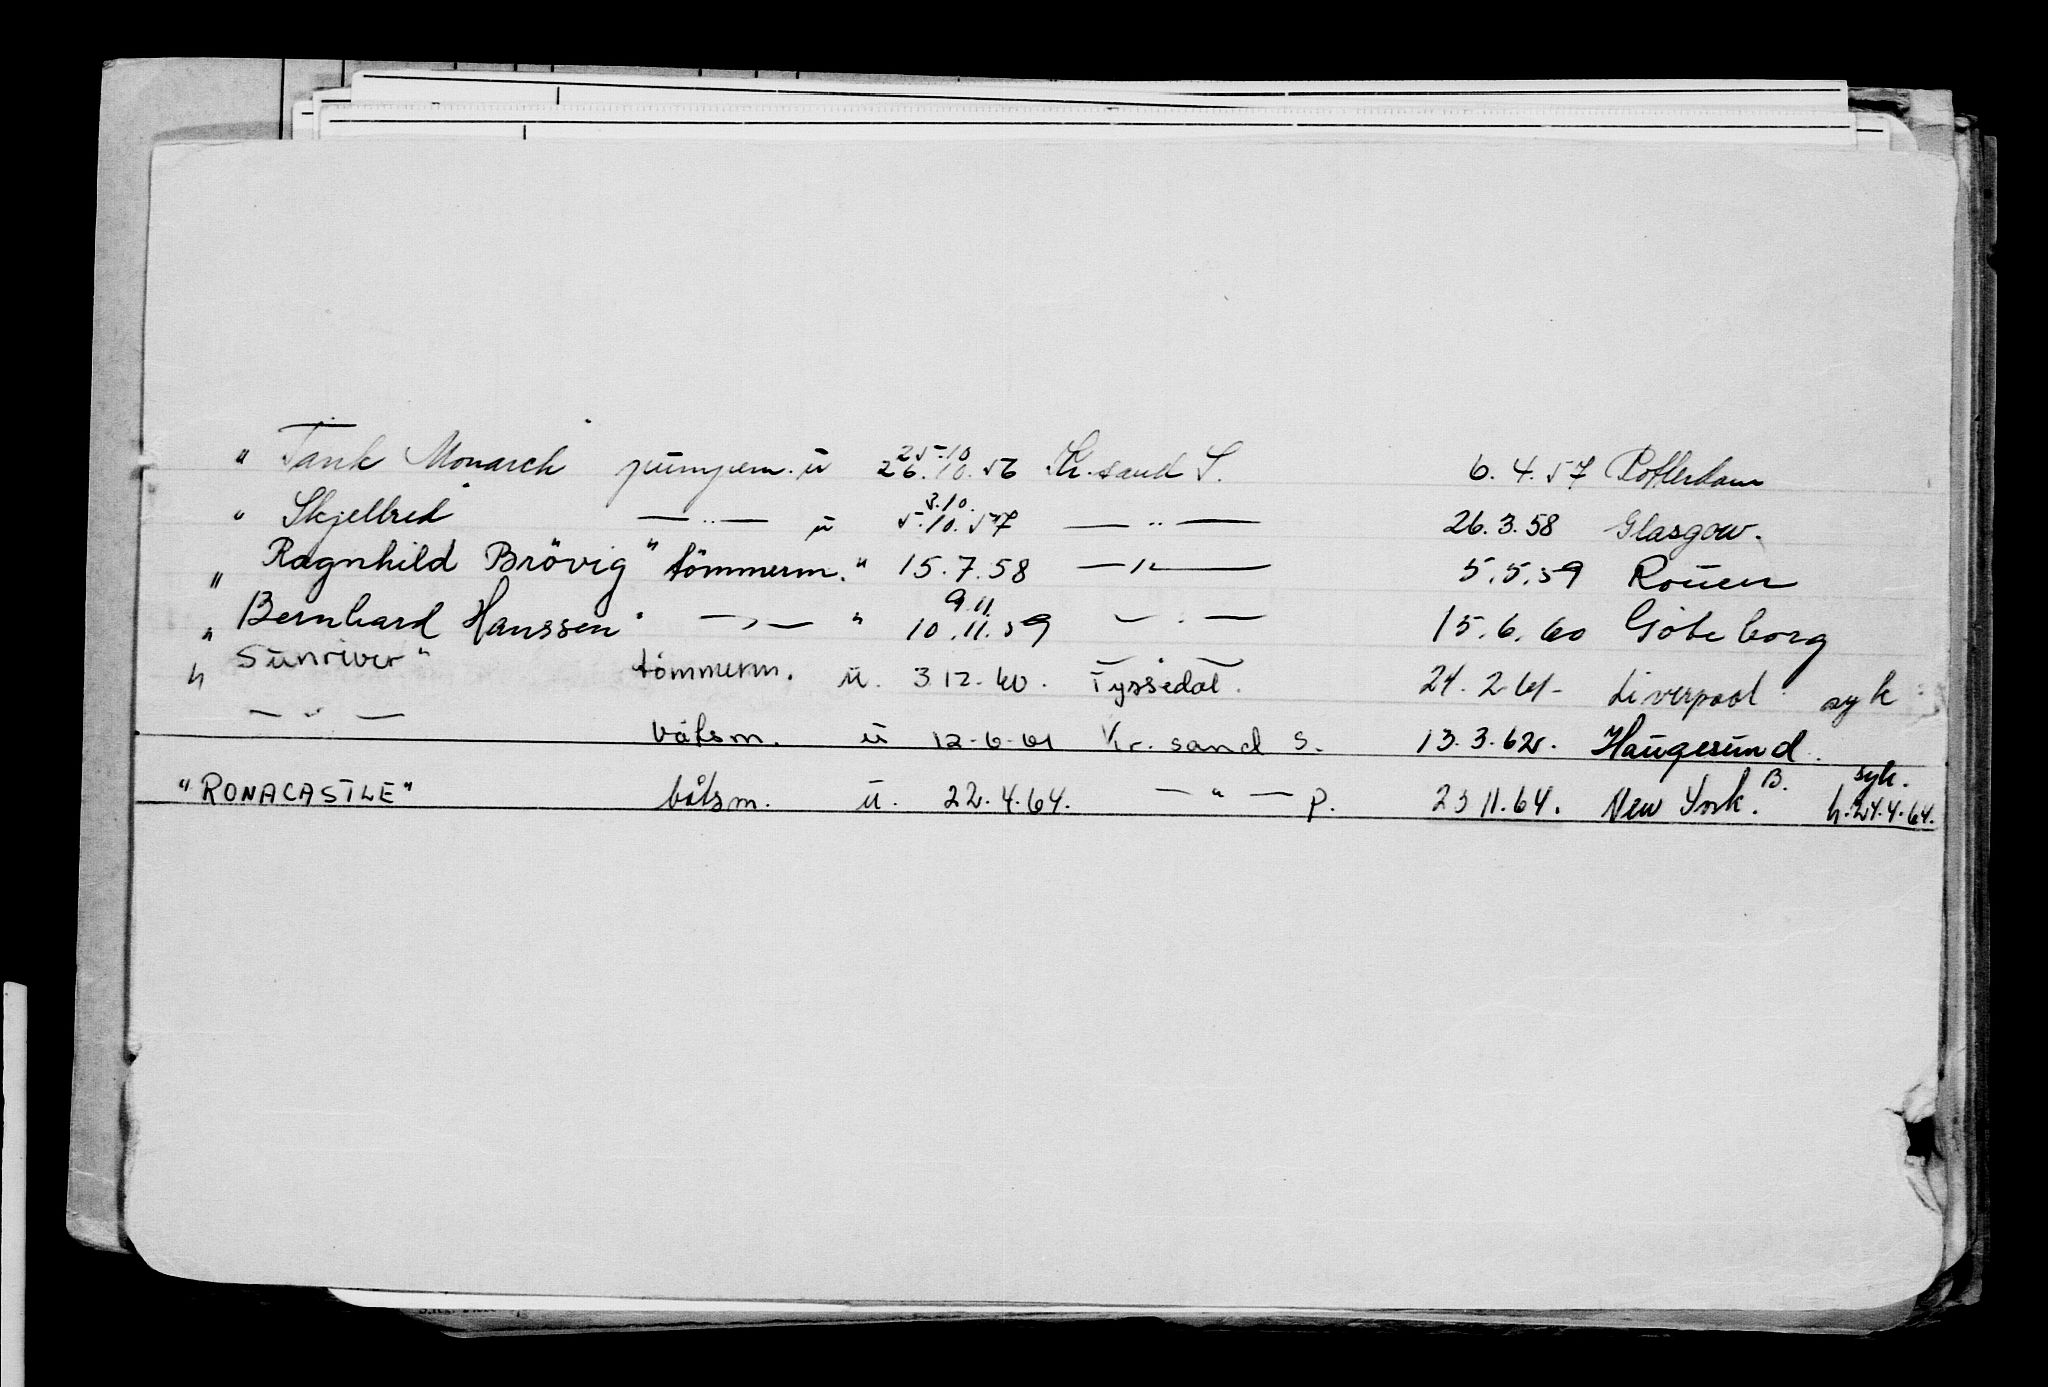 " Tank Monarch" pumpem. u 25.10 26.10.56 Kr.sand S. 6.4.57 Rotterdam
" Skjelbred" — " — u 3.10. 5.10.57 — " — 26.3.58 Glasgow.
" Ragnhild Brövig" tömmerm. " 15.7.58 — " — 5.5.59 Rouen
" Bernhard Hanssen" — " — " 9.11. 10.11.59 — " — 15.6.60 Göteborg
" Sunriver" tömmerm. u. 3.12.60. Tyssedal. 24.2.61- Liverpool syk
— " — båtsm. u 12-6-61 Kr. sand S. 13.3.62. Haugesund.
"RONACASTLE" båtsm. u. 22.4.64. — " — p. 23 11.64. New York. B. syk. h.24.4.64.